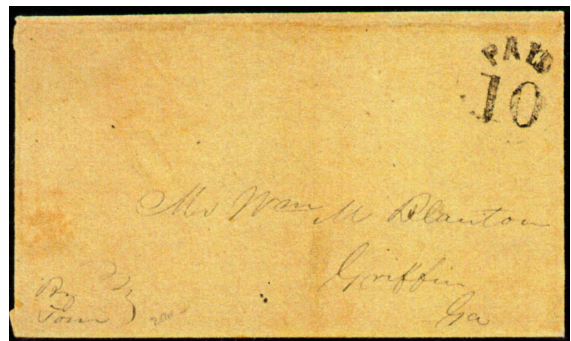 PAID
10
Mr Wm M Blanton
Griffin
Ga
By
Tom